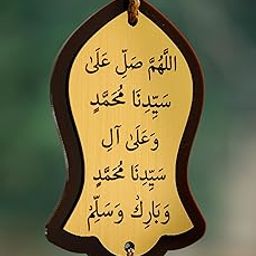 اللَّهُمَّ صَلِّ عَلَىٰ
سَيِّدِنَا مُحَمَّدٍ
وَعَلَىٰ آلِ
سَيِّدِنَا مُحَمَّدٍ
وَبَارِكْ وَسَلِّمْ